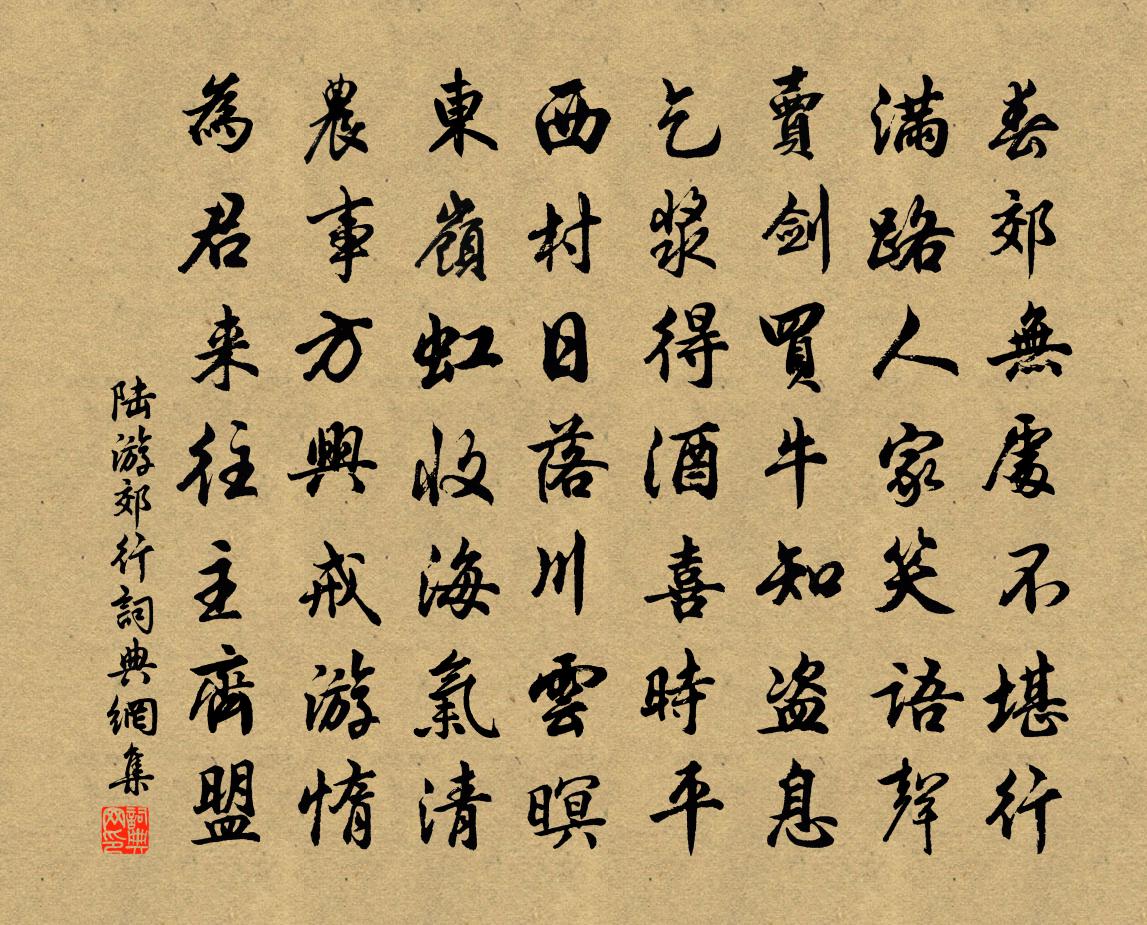 春郊無處不堪行
滿路人家笑語聲
賣劍買牛知盜息
乞漿得酒喜時平
西村日落川雲暝
東嶺虹收海氣清
農事方興戒游惰
為君来往主齊盟
陆游郊行詞典網集
詞典网印